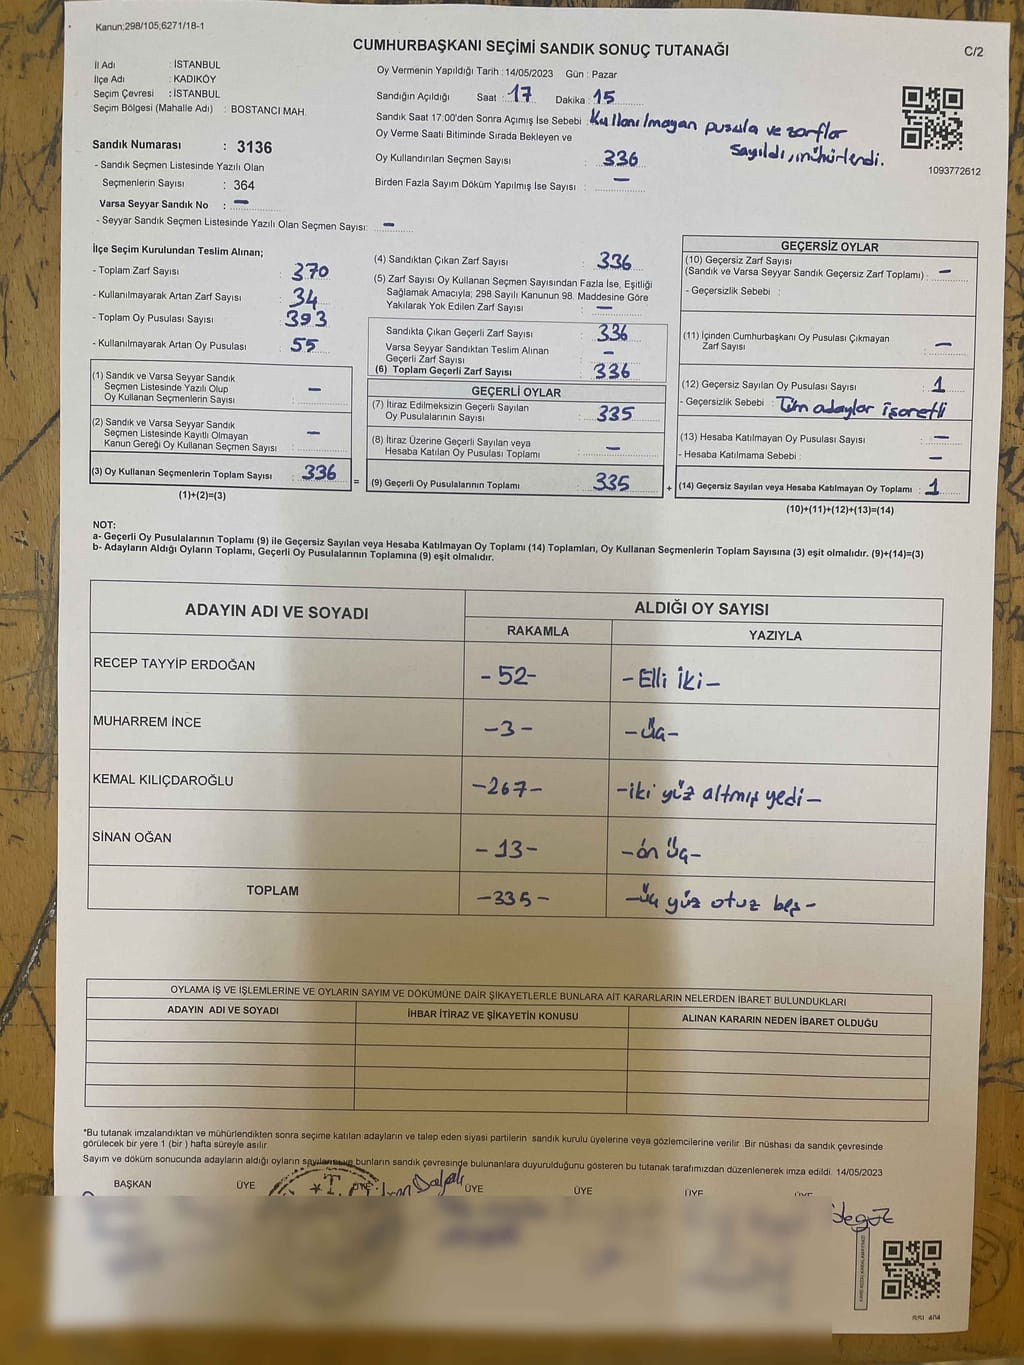 Kanun;298/105,6271/18-1
CUMHURBAŞKANI SEÇİMİ SANDIK SONUÇ TUTANAĞI
C/2
İl Adı : İSTANBUL
İlçe Adı : KADIKÖY
Seçim Çevresi : İSTANBUL
Seçim Bölgesi (Mahalle Adı) : BOSTANCI MAH.
Oy Vermenin Yapıldığı Tarih : 14/05/2023 Gün : Pazar
Sandığın Açıldığı Saat : 17 Dakika : 15
Sandık Saat 17:00'den Sonra Açımış İse Sebebi : Kullanılmayan pusula ve zarflar
sayıldı, mühürlendi.
Oy Verme Saati Bitiminde Sırada Bekleyen ve
Oy Kullandırılan Seçmen Sayısı : 336
Birden Fazla Sayım Döküm Yapılmış İse Sayısı : —
1093772612
Sandık Numarası : 3136
- Sandık Seçmen Listesinde Yazılı Olan
Seçmenlerin Sayısı : 364
Varsa Seyyar Sandık No : —
- Seyyar Sandık Seçmen Listesinde Yazılı Olan Seçmen Sayısı: —
İlçe Seçim Kurulundan Teslim Alınan;
- Toplam Zarf Sayısı : 370
- Kullanılmayarak Artan Zarf Sayısı : 34
- Toplam Oy Pusulası Sayısı : 393
- Kullanılmayarak Artan Oy Pusulası : 55
(1) Sandık ve Varsa Seyyar Sandık
Seçmen Listesinde Yazılı Olup
Oy Kullanan Seçmenlerin Sayısı : —
(2) Sandık ve Varsa Seyyar Sandık
Seçmen Listesinde Kayıtlı Olmayan
Kanun Gereği Oy Kullanan Seçmen Sayısı : —
(3) Oy Kullanan Seçmenlerin Toplam Sayısı : 336
(1)+(2)=(3)
(4) Sandıktan Çıkan Zarf Sayısı : 336
(5) Zarf Sayısı Oy Kullanan Seçmen Sayısından Fazla İse, Eşitliği
Sağlamak Amacıyla; 298 Sayılı Kanunun 98. Maddesine Göre
Yakılarak Yok Edilen Zarf Sayısı : —
Sandıkta Çıkan Geçerli Zarf Sayısı : 336
Varsa Seyyar Sandıktan Teslim Alınan
Geçerli Zarf Sayısı : —
(6) Toplam Geçerli Zarf Sayısı : 336
GEÇERLİ OYLAR
(7) İtiraz Edilmeksizin Geçerli Sayılan
Oy Pusulalarının Sayısı : 335
(8) İtiraz Üzerine Geçerli Sayılan veya
Hesaba Katılan Oy Pusulası Toplamı : —
= (9) Geçerli Oy Pusulalarının Toplamı : 335 +
GEÇERSİZ OYLAR
(10) Geçersiz Zarf Sayısı
(Sandık ve Varsa Seyyar Sandık Geçersiz Zarf Toplamı) : —
- Geçersizlik Sebebi :
(11) İçinden Cumhurbaşkanı Oy Pusulası Çıkmayan
Zarf Sayısı : —
(12) Geçersiz Sayılan Oy Pusulası Sayısı : 1
- Geçersizlik Sebebi : Tüm adaylar işaretli
(13) Hesaba Katılmayan Oy Pusulası Sayısı : —
- Hesaba Katılmama Sebebi : —
(14) Geçersiz Sayılan veya Hesaba Katılmayan Oy Toplamı : 1
(10)+(11)+(12)+(13)=(14)
NOT:
a- Geçerli Oy Pusulalarının Toplamı (9) ile Geçersiz Sayılan veya Hesaba Katılmayan Oy Toplamı (14) Toplamları, Oy Kullanan Seçmenlerin Toplam Sayısına (3) eşit olmalıdır. (9)+(14)=(3)
b- Adayların Aldığı Oyların Toplamı, Geçerli Oy Pusulalarının Toplamına (9) eşit olmalıdır.
ADAYIN ADI VE SOYADI ALDIĞI OY SAYISI
RAKAMLA YAZIYLA
RECEP TAYYİP ERDOĞAN -52- -Elli iki-
MUHARREM İNCE -3- -Üç-
KEMAL KILIÇDAROĞLU -267- -iki yüz altmış yedi-
SİNAN OĞAN -13- -ön üç-
TOPLAM -335- -üç yüz otuz beş-
OYLAMA İŞ VE İŞLEMLERİNE VE OYLARIN SAYIM VE DÖKÜMÜNE DAİR ŞİKAYETLERLE BUNLARA AİT KARARLARIN NELERDEN İBARET BULUNDUKLARI
ADAYIN ADI VE SOYADI İHBAR İTİRAZ VE ŞİKAYETİN KONUSU ALINAN KARARIN NEDEN İBARET OLDUĞU
*Bu tutanak imzalandıktan ve mühürlendikten sonra seçime katılan adayların ve talep eden siyasi partilerin sandık kurulu üyelerine veya gözlemcilerine verilir .Bir nüshası da sandık çevresinde
görülecek bir yere 1 (bir ) hafta süreyle asılır
Sayım ve döküm sonucunda adayların aldığı oyların sayılması ve bunların sandık çevresinde bulunanlara duyurulduğunu gösteren bu tutanak tarafımızdan düzenlenerek imza edildi. 14/05/2023
BAŞKAN ÜYE ÜYE ÜYE ÜYE ÜYE ÜYE